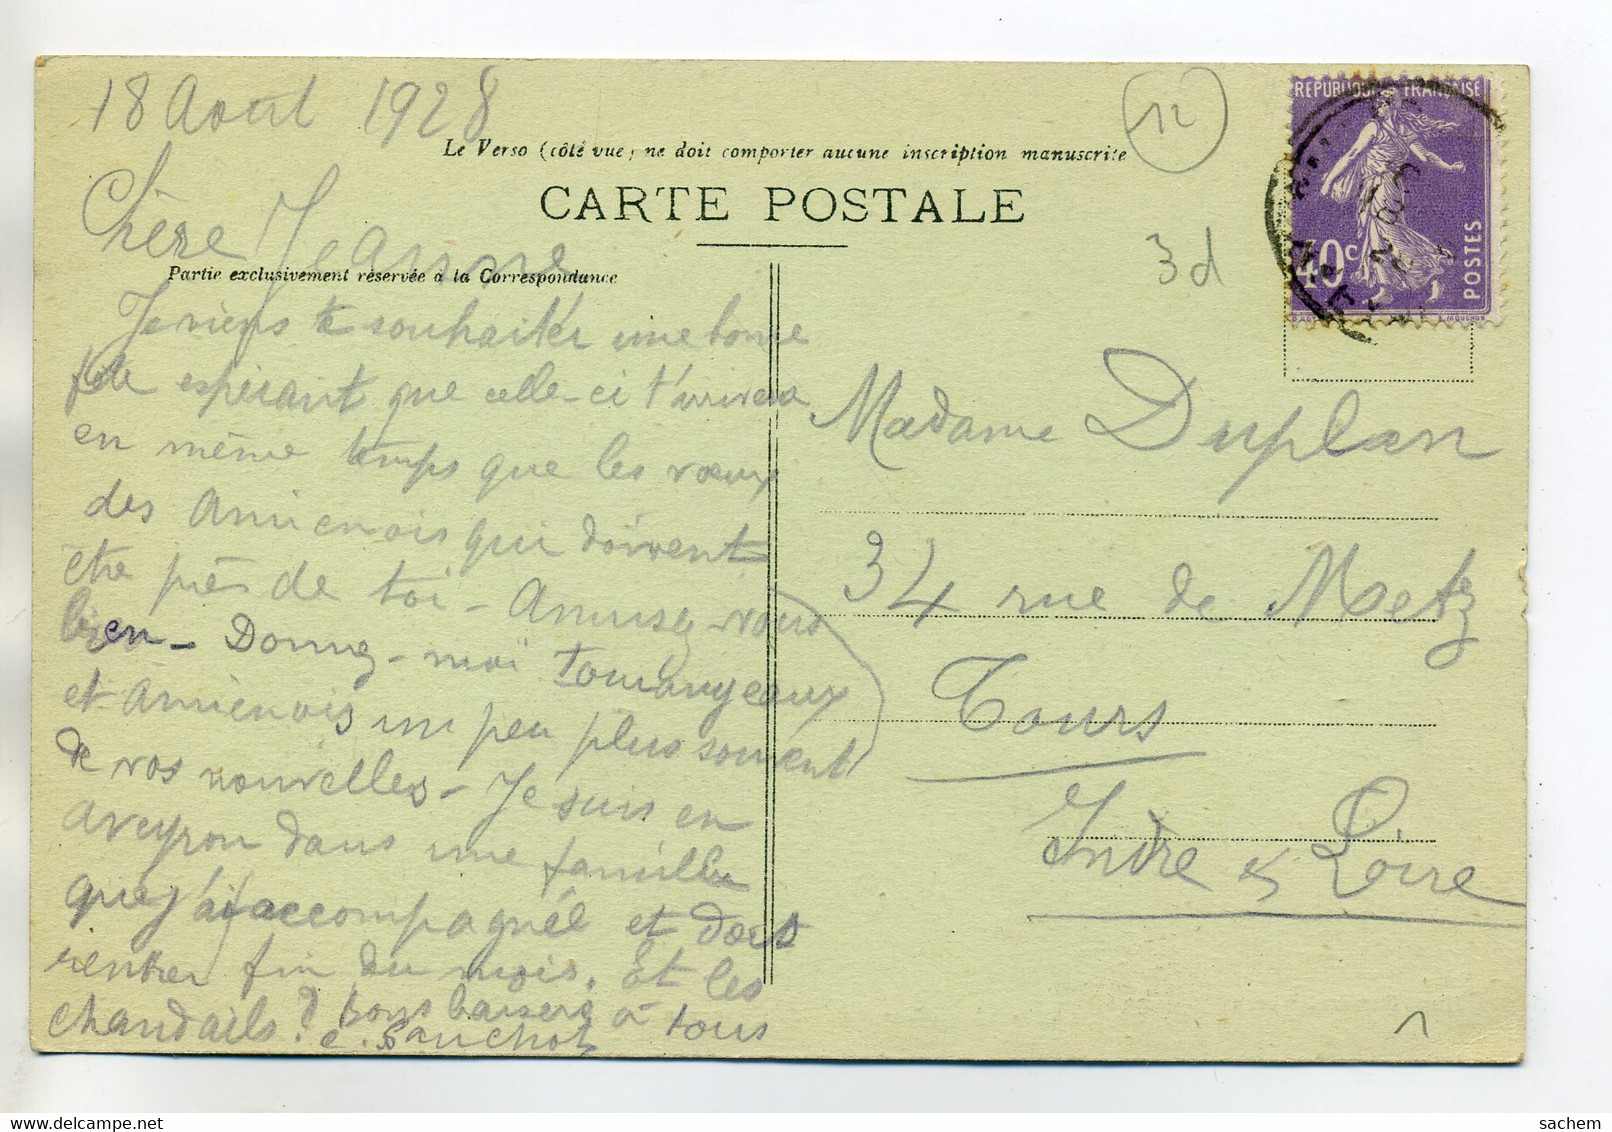 18 Août 1928
12
Le Verso (côté vue) ne doit comporter aucune inscription manuscrite
CARTE POSTALE
Partie exclusivement réservée à la Correspondance
3d
RÉPUBLIQUE FRANÇAISE
40c
POSTES
Chère Jeanne
Je viens te souhaiter une bonne
fête espérant que celle-ci t'arrivera
en même temps que les vœux
des Amienois qui doivent
être près de toi - Amusez-vous
bien - Donnez-moi Tourangeaux
et Amienois un peu plus souvent
de vos nouvelles - Je suis en
Aveyron dans une famille
que j'ai accompagné et dois
rentrer fin du mois. Et les
chandails ? Bons baisers à tous
C. Sauchot
Madame Duplan
34 rue de Metz
Tours
Indre & Loire
1
sachem